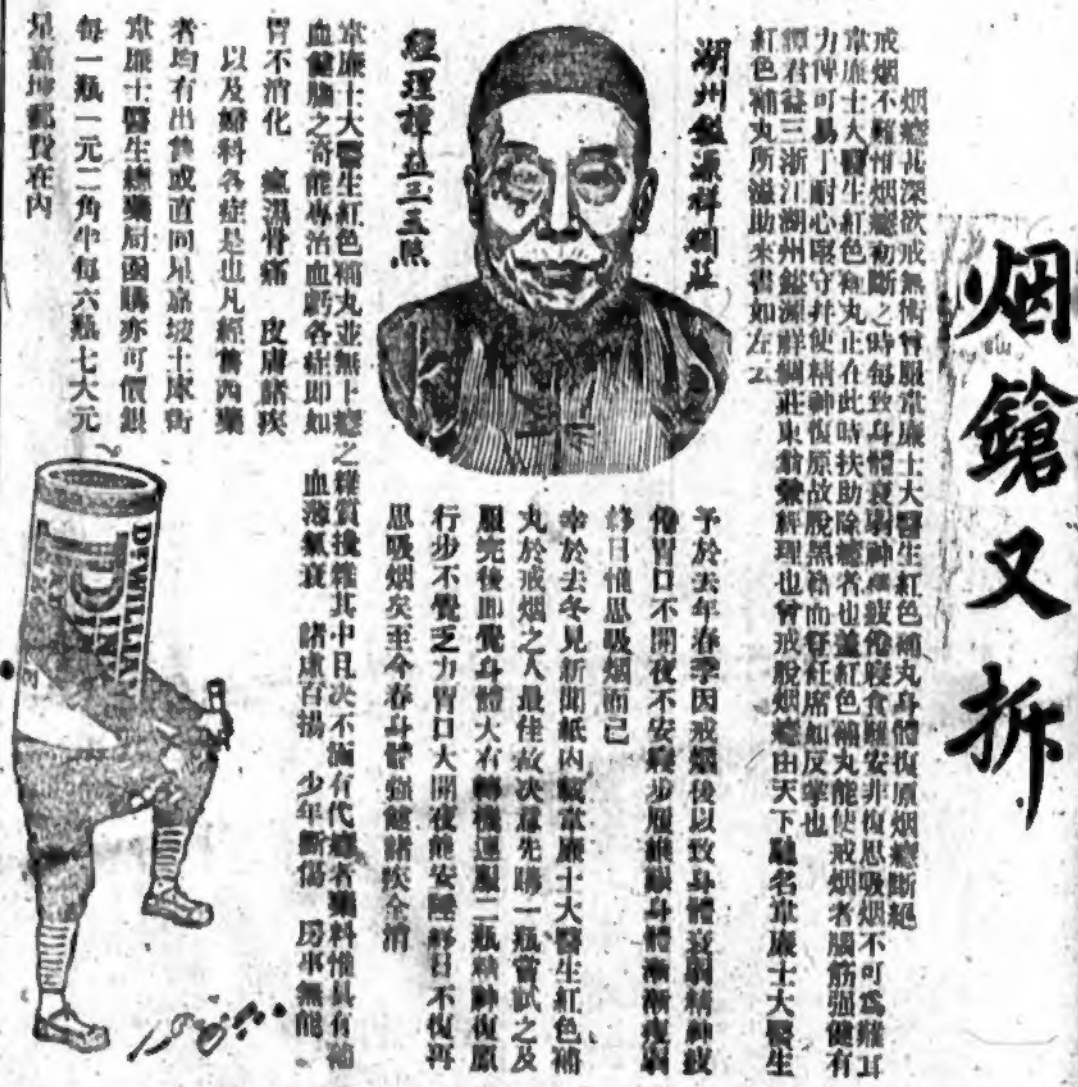 烟鎗又拆
烟癮甚深欲戒無術曾服韋廉士大醫生紅色補丸身體復原烟癮斷絕
戒烟不難惟烟癮初斷之時每致身體衰弱神疲倦寢食難安非復思吸烟不可為難耳
韋廉士大醫生紅色補丸正在此時扶助除癮者也蓋紅色補丸能使戒烟者腦筋强健有
力俾可易于耐心堅守并使精神復原故脫黑籍而登衽席如反掌也
譚君益三浙江湖州鎰源祥綢莊東翁兼經理也曾戒脫烟癮由天下馳名韋廉士大醫生
紅色補丸所滋助來書如左云
湖州鎰源祥綢莊
經理譚益三玉照
予於去年春季因戒烟後以致身體衰弱精神疲
倦胃口不開夜不安寢步履維艱身體漸漸瘦弱
終日惟思吸烟而已
幸於去冬見新聞紙內載韋廉士大醫生紅色補
丸於戒烟之人最佳故决意先購一瓶嘗試之及
服完後即覺身體大有轉機連服二瓶精神復原
行步不覺乏力胃口大開夜能安睡終日不復再
思吸烟矣至今春身體强健諸疾全消
韋廉士大醫生紅色補丸並無上癮之雜質攙雜其中且决不滿有代癮者藥料惟具有補
血健腦之奇能專治血虧各症即如 血薄氣衰 諸虛百損 少年斷傷 房事無能
胃不消化 瘋濕骨痛 皮膚諸疾
以及婦科各症是也凡經售西藥
者均有出售或直向星嘉坡士庫街
韋廉士醫生總藥局函購亦可價銀
每一瓶一元二角半每六瓶七大元
星嘉坡郵費在內
DR WILLIA
PINK